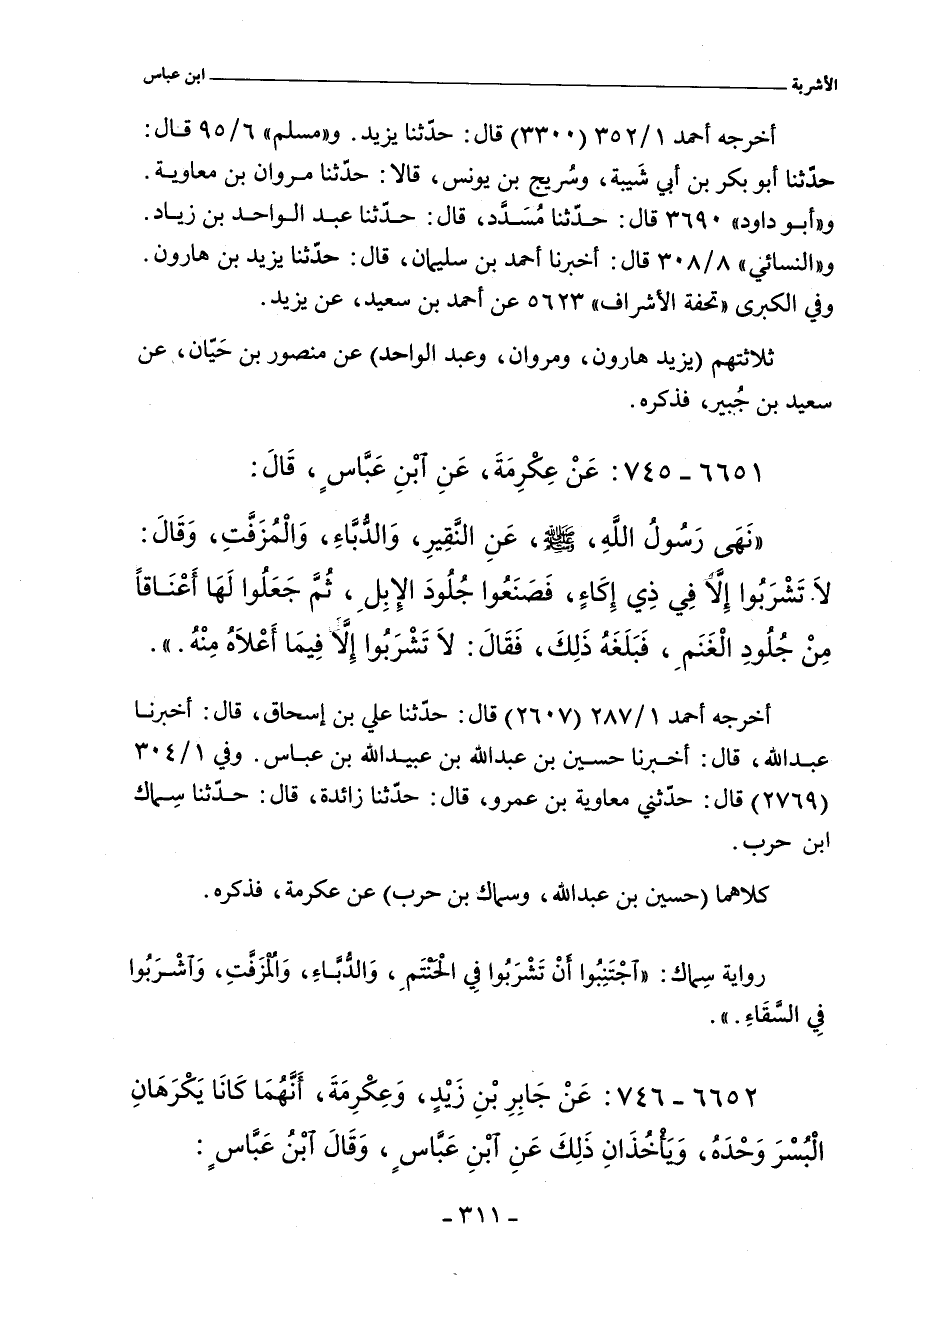 الأشربة ــــــــ ابن عباس
أخرجه أحمد ١/ ٣٥٢ (٣٣٠٠) قال: حدّثنا يزيد. و«مسلم» ٦/ ٩٥ قال:
حدّثنا أبو بكر بن أبي شَيبة، وسُريج بن يونس، قالا: حدّثنا مروان بن معاوية.
و«أبو داود» ٣٦٩٠ قال: حدّثنا مُسَدَّد، قال: حدّثنا عبد الواحد بن زياد.
و«النسائي» ٨/ ٣٠٨ قال: أخبرنا أحمد بن سليمان، قال: حدّثنا يزيد بن هارون.
وفي الكبرى «تحفة الأشراف» ٥٦٢٣ عن أحمد بن سعيد، عن يزيد.
ثلاثتهم (يزيد هارون، ومروان، وعبد الواحد) عن منصور بن حَيَّان، عن
سعيد بن جُبير، فذكره.
٦٦٥١ ـ ٧٤٥: عَنْ عِكْرِمَةَ، عَنِ ٱبْنِ عَبَّاسٍ، قَالَ:
«نَهَى رَسُولُ اللَّهِ، ﷺ، عَنِ النَّقِيرِ، وَالدُّبَّاءِ، وَالْمُزَفَّتِ، وَقَالَ:
لاَ تَشْرَبُوا إِلَّا فِي ذِي إِكَاءٍ، فَصَنَعُوا جُلُودَ الإِبِلِ، ثُمَّ جَعَلُوا لَهَا أَعْنَاقاً
مِنْ جُلُودِ الْغَنَمِ، فَبَلَغَهُ ذَلِكَ، فَقَالَ: لاَ تَشْرَبُوا إِلَّا فِيمَا أَعْلاَهُ مِنْهُ.».
أخرجه أحمد ١/ ٢٨٧ (٢٦٠٧) قال: حدّثنا علي بن إسحاق، قال: أخبرنا
عبدالله، قال: أخبرنا حسين بن عبدالله بن عبيدالله بن عباس. وفي ١/ ٣٠٤
(٢٧٦٩) قال: حدّثني معاوية بن عمرو، قال: حدّثنا زائدة، قال: حدّثنا سِماك
ابن حرب.
كلاهما (حسين بن عبدالله، وسماك بن حرب) عن عكرمة، فذكره.
رواية سِماك: «ٱجْتَنِبُوا أَنْ تَشْرَبُوا فِي الْحَنْتَمِ، وَالدُّبَّاءِ، وَالْمُزَفَّتِ، وَٱشْرَبُوا
فِي السِّقَاءِ.».
٦٦٥٢ ـ ٧٤٦: عَنْ جَابِرِ بْنِ زَيْدٍ، وَعِكْرِمَةَ، أَنَّهُمَا كَانَا يَكْرَهَانِ
الْبُسْرَ وَحْدَهُ، وَيَأْخُذَانِ ذَلِكَ عَنِ ٱبْنِ عَبَّاسٍ، وَقَالَ ٱبْنُ عَبَّاسٍ:
ـ ٣١١ ـ